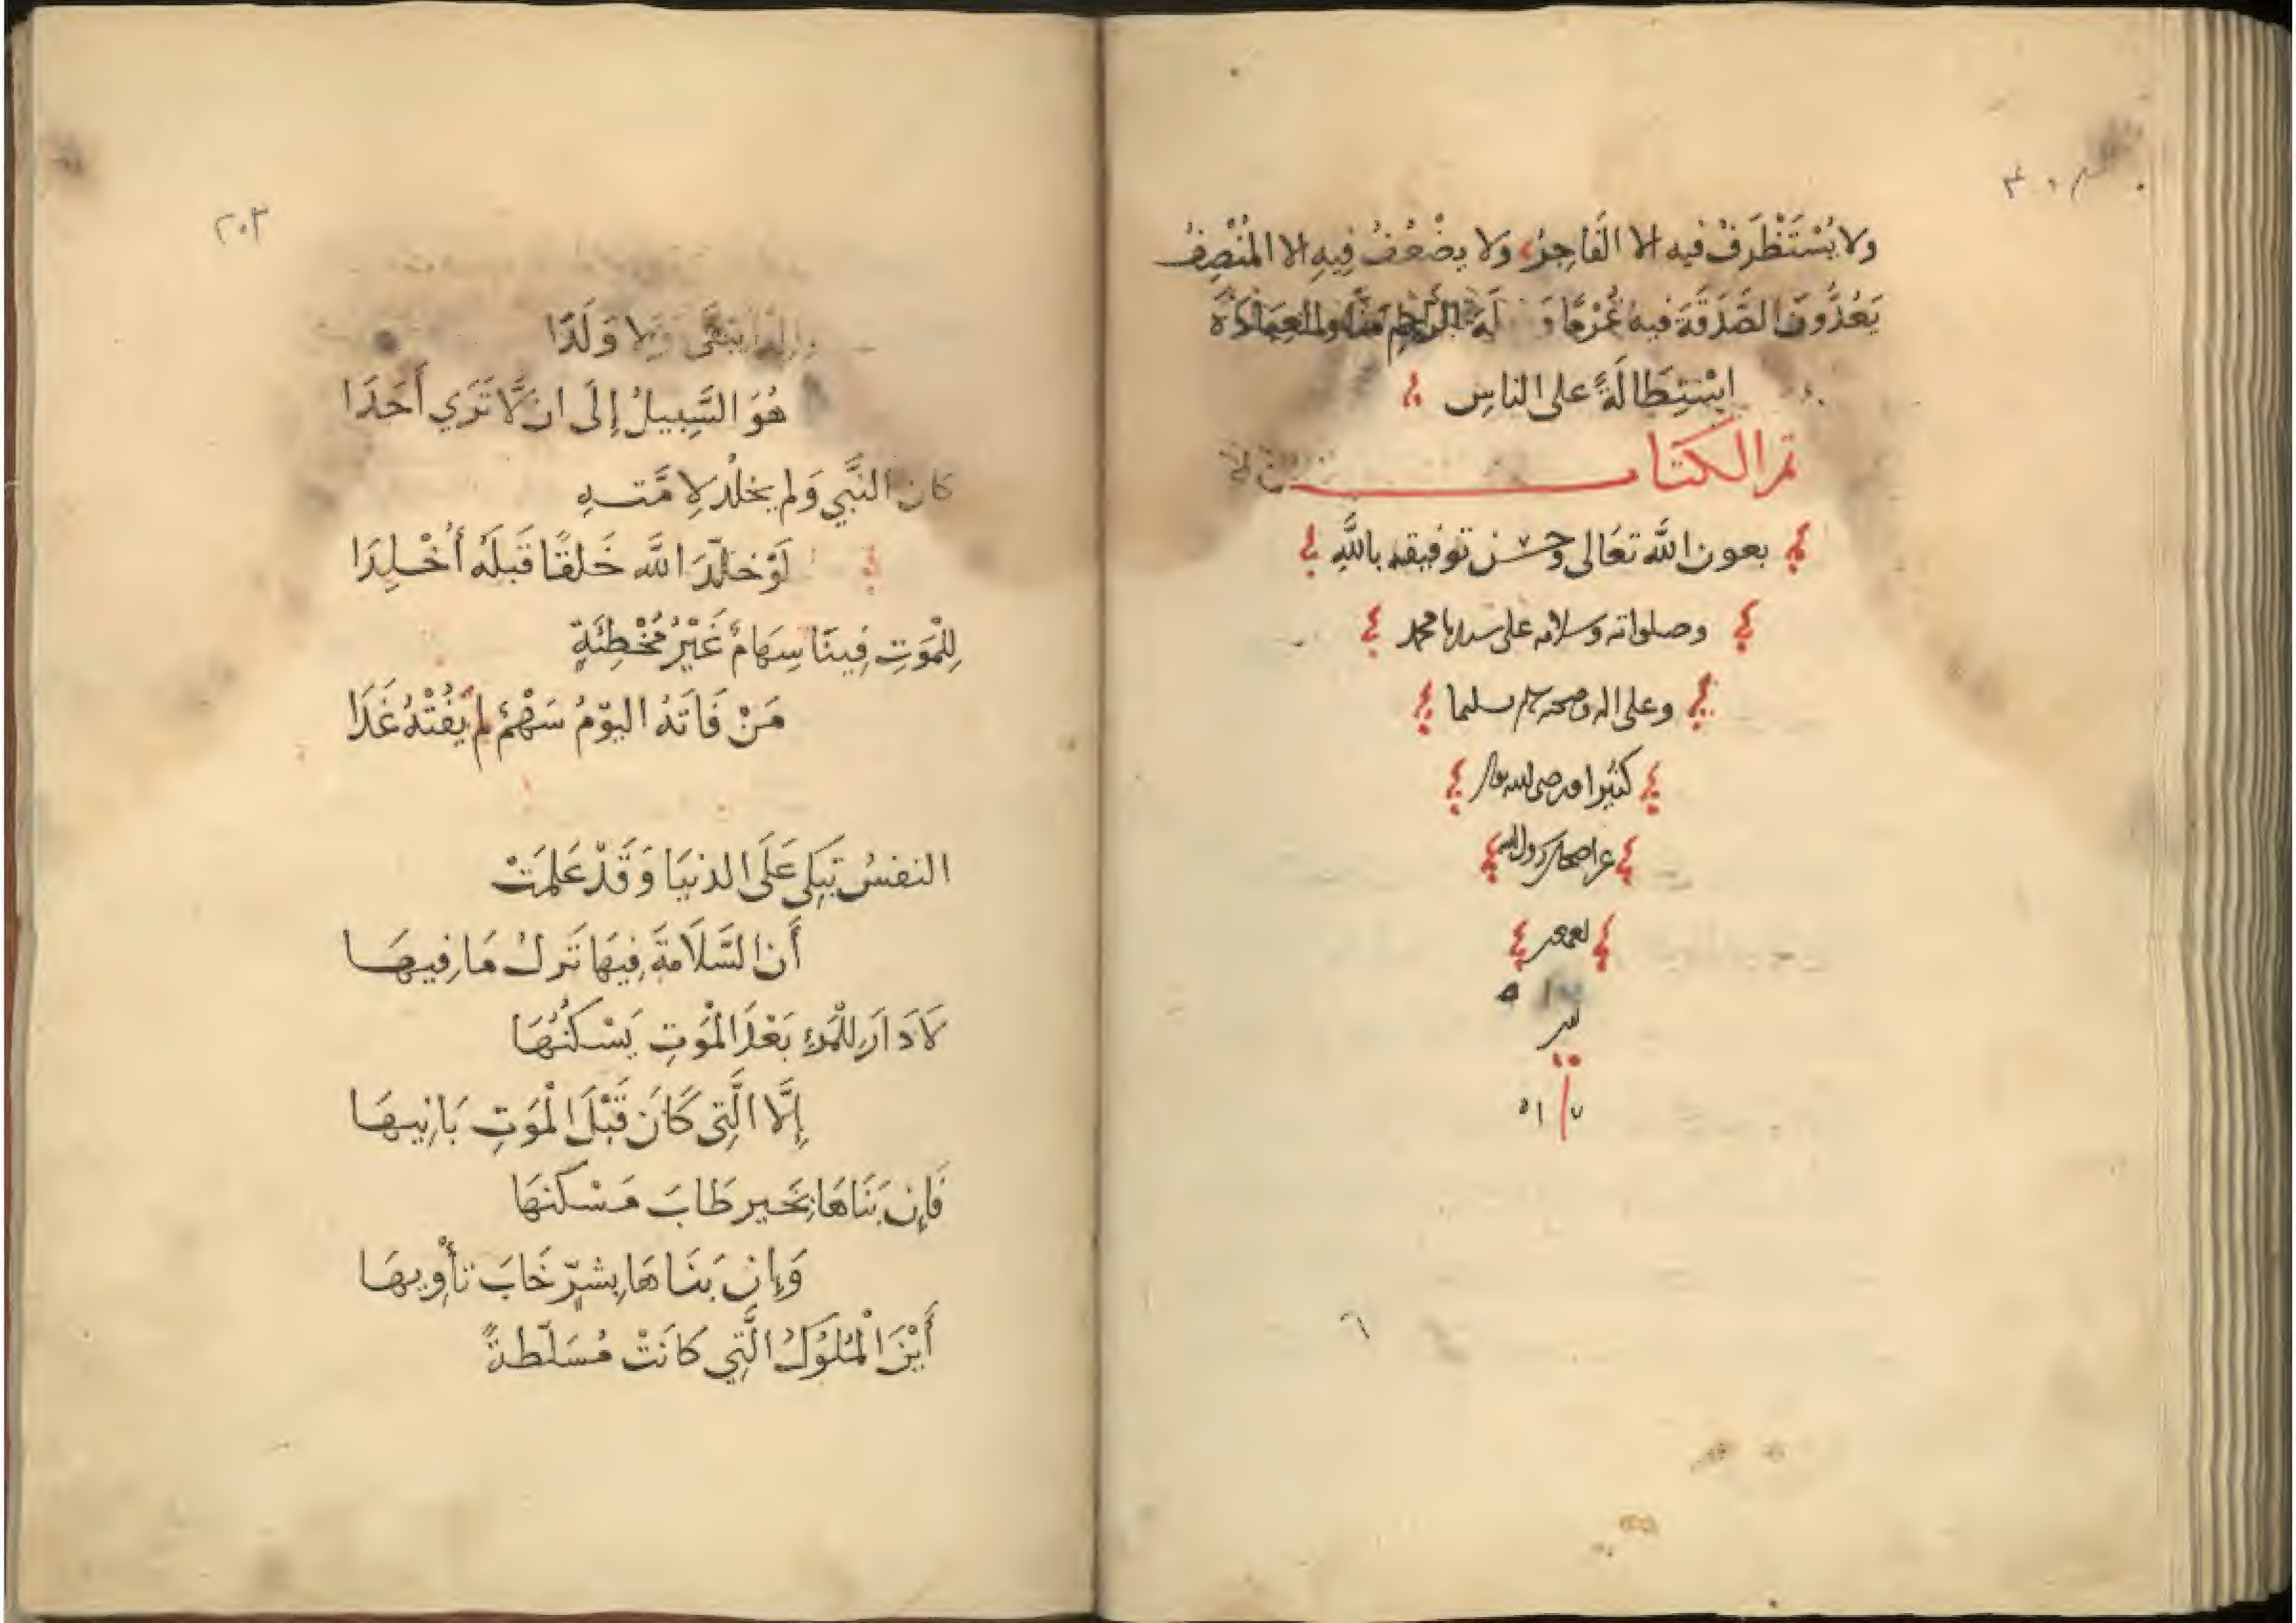 ولا يُسْتَظْرَفْ فيه الا الفَاجِرُ، ولا يضْعُفُ فِيهِ الا المُنْصِفُ
يَعُدُّونَ الصَّدَقَةَ فيهِ غُرْمًا وَ لَةَ الرَّحِمِ مَنًّا والعِبَادَةَ
اِسْتِطَالَةً على الناسِ
تم الكتاب
بعون الله تعَالى وحسن توفيقه بالله
وصلواته وسلامه على سيدنا محمد
وعلى اله وصحبه وسلم تسليما
كثيرا ورضى الله
عن اصحاب رسول الله
اجمعين
٢٠٣
يَبْقَى وَلا وَلَدًا
هُوَ السَّبِيلُ إِلَى ان لَّا تَرَي أَحَدَا
كان النَّبِي وَلم يخلُدْ لِامَّتـهِ
لَوْ خلّدَ اللَّه خَلقًا قَبلَهُ أُخْـلِدَا
لِلْمَوَتِ فِينَا سِهَامٌ غَيْرُ مُخْطِئَةٍ
مَنْ فَاتَهُ اليوَمُ سَهْمٌ لمْ يَفُتْهُ غَدَا
النفسُ تَبكِى عَلَى الدنيَا وَقَدْ عَلِمَتْ
أَن السَّلَامَةَ فِيهَا تَركُ مَا فِيهَـا
لَا دَارَ لِلْمَرءِ بَعْدَ الْمَوَتِ يَسْكنُهَا
إِلَّا الَّتِى كَانَ قَبْلَ الْمَوَتِ بَانِيهَا
فَإِن بَنَاهَا بِخَيرٍ طَابَ مَسْكنهَا
وَإِن بَنَاهَا بِشرٍّ خَابَ تأْوِيهَا
أَيْنَ الْمُلُوكُ الَّتِي كَانَتْ مُسَلّطةً